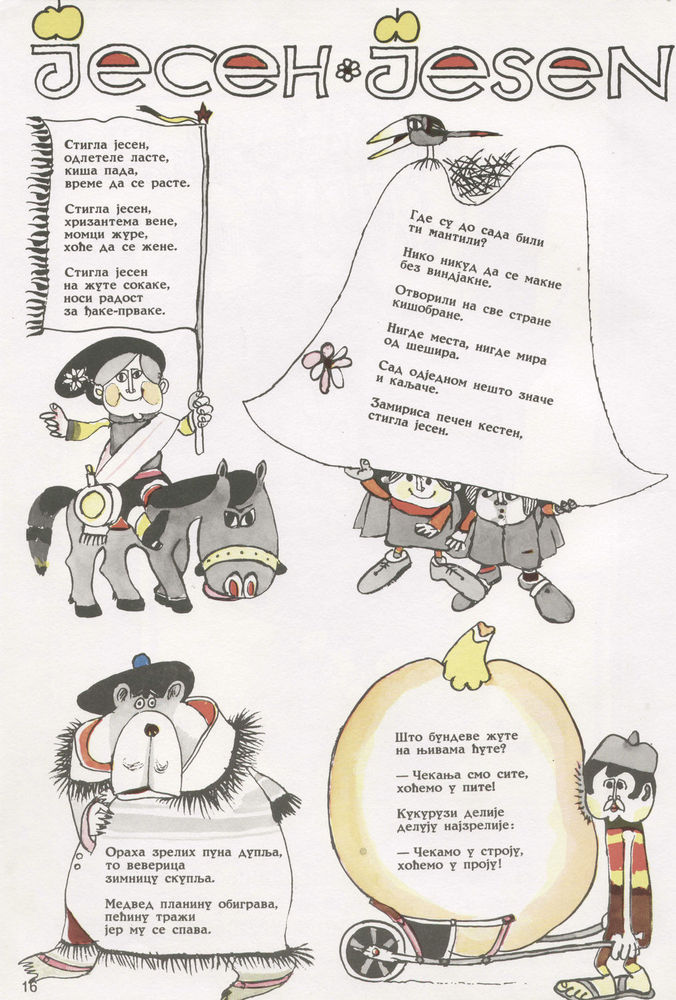 ЈЕСЕН * JESEN
Стигла јесен,
одлетеле ласте,
киша пада,
време да се расте.
Стигла јесен,
хризантема вене,
момци журе,
хоће да се жене.
Стигла јесен
на жуте сокаке,
носи радост
за ђаке-прваке.
Где су до сада били
ти мантили?
Нико никуд да се макне
без виндјакне.
Отворили на све стране
кишобране.
Нигде места, нигде мира
од шешира.
Сад одједном нешто значе
и каљаче.
Замириса печен кестен,
стигла јесен.
Ораха зрелих пуна дупља,
то веверица
зимницу скупља.
Медвед планину обиграва,
пећину тражи
јер му се спава.
Што бундеве жуте
на њивама ћуте?
— Чекања смо сите,
хоћемо у пите!
Кукурузи делије
делују најзрелије:
— Чекамо у строју,
хоћемо у проју!
16